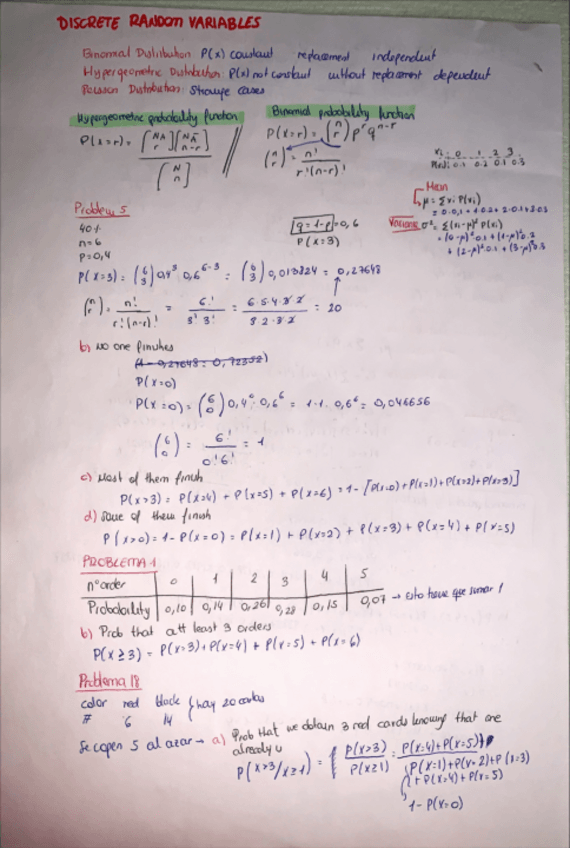 DISCRETE RANDOM VARIABLES
Binomial Distribution P(x) constant replacement independent
Hypergeometric Distribution: P(x) not constant without replacement dependent
Poisson Distribution: Strange cases
Hypergeometric probability function
P(x=r) = [NA r][NĀ n-r] / [N n]
Binomial probability function
P(x=r) = (n r) p^r q^n-r
(n r) = n! / r!(n-r)!
xi: 0 1 2 3
P(xi): 0.1 0.2 0.1 0.3
Mean
μ = Σxi P(xi)
= 0·0,1+1·0.2+2·0.1+3·0.3
Variance σ² = Σ(xi-μ)² P(xi)
= (0-μ)² 0.1 + (1-μ)² 0.2
+ (2-μ)² 0.1 + (3-μ)² 0.3
Problem 5
40%
n=6
p=0,4
q=1-p=0,6
P(x=3)
P(x=3) = (6 3) 0,4³ 0,6^6-3 = (6 3) 0,013824 = 0,27648
(n r) = n! / r!(n-r)! = 6! / 3! 3! = 6·5·4·3·2 / 3·2·3·2 = 20
b) No one finishes
(1-0,27648 = 0,72352)
P(x=0)
P(x=0) = (6 0) 0,4⁰ · 0,6⁶ = 1·1·0,6⁶ = 0,046656
(6 0) = 6! / 0!6! = 1
c) Most of them finish
P(x>3) = P(x=4) + P(x=5) + P(x=6) = 1 - [P(x=0)+P(x=1)+P(x=2)+P(x=3)]
d) Some of them finish
P(x>0) = 1-P(x=0) = P(x=1) + P(x=2) + P(x=3) + P(x=4) + P(x=5)
PROBLEMA 1
nº order 0 1 2 3 4 5
Probability 0,10 0,14 0,26 0,28 0,15 0,07 → Esto tiene que sumar 1
b) Prob that att least 3 orders
P(x≥3) = P(x=3) + P(x=4) + P(x=5) + P(x=6)
Problema 18
color red black } hay 20 cartas
# 6 14
Se cogen 5 al azar → a) Prob that we obtain 3 red cards knowing that one
already u
P(x>3/x≥1) = { P(x>3) / P(x≥1) = P(x=4)+P(x=5) / P(x=1)+P(x=2)+P(x=3)
+P(x=4)+P(x=5)
1-P(x=0)